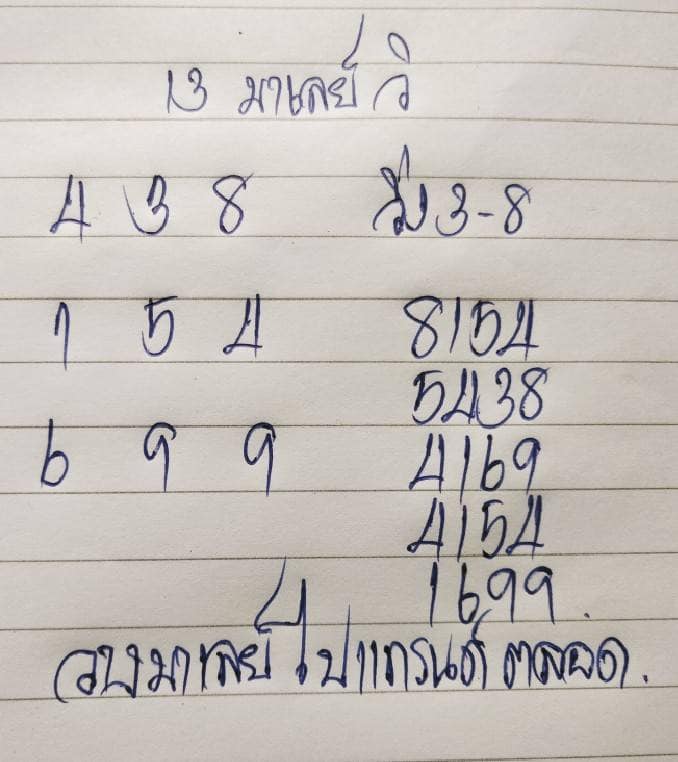 13 มาเลย์ วิ
4 3 8 วิ่ง 3-8
1 5 4 8154
5438
6 9 9 4169
4154
1699
วางมาเลย์ ไปแกรนด์ ตลอด.